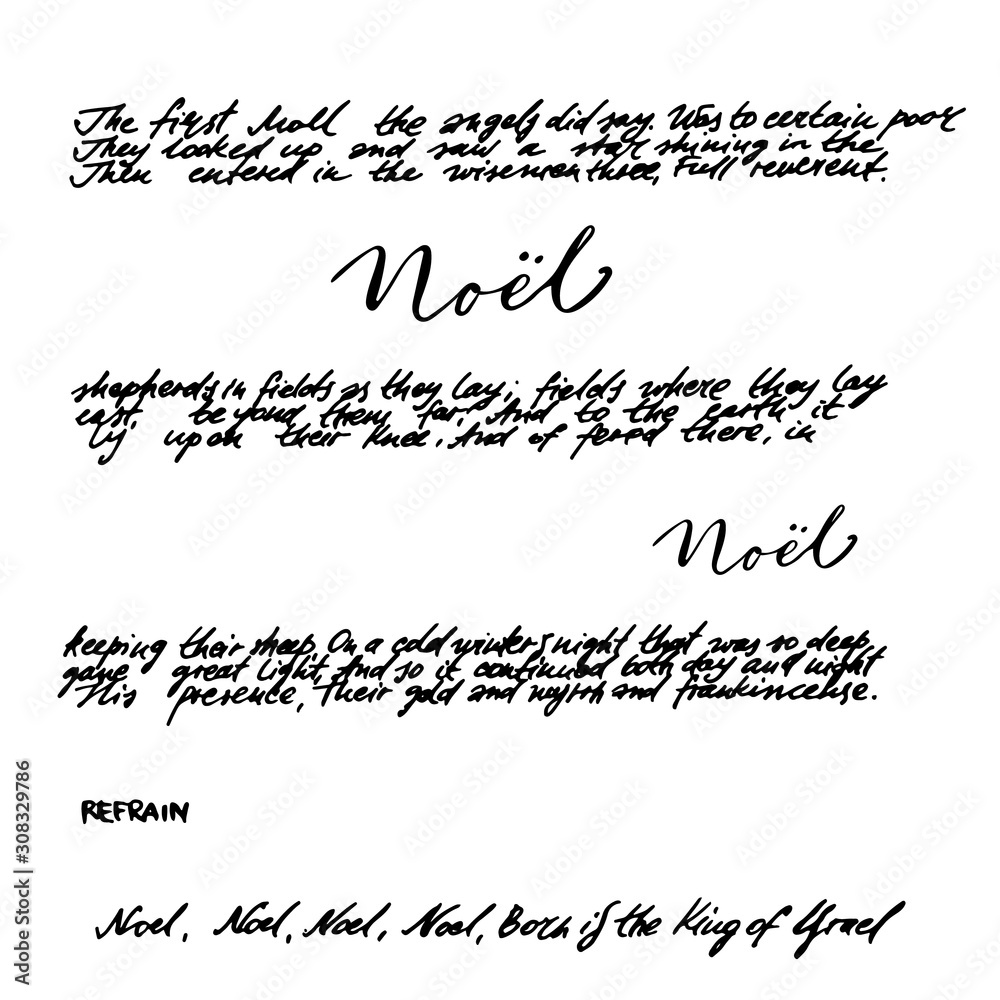 The first Noll the angels did say. Was to certain poor
They looked up and saw a star shining in the
Then entered in the wisemen three, Full reverent.
Noël
shepherds in fields as they lay; fields where they lay
east, beyond them far, And to the earth it
ly upon their knee. And offered there, in
Noël
keeping their sheep, On a cold winter's night that was so deep,
gave great light, And so it continued both day and night
His presence, Their gold and myrrh and frankincense.
REFRAIN
Noel, Noel, Noel, Noel, Born is the King of Israel
Adobe Stock | #308329786